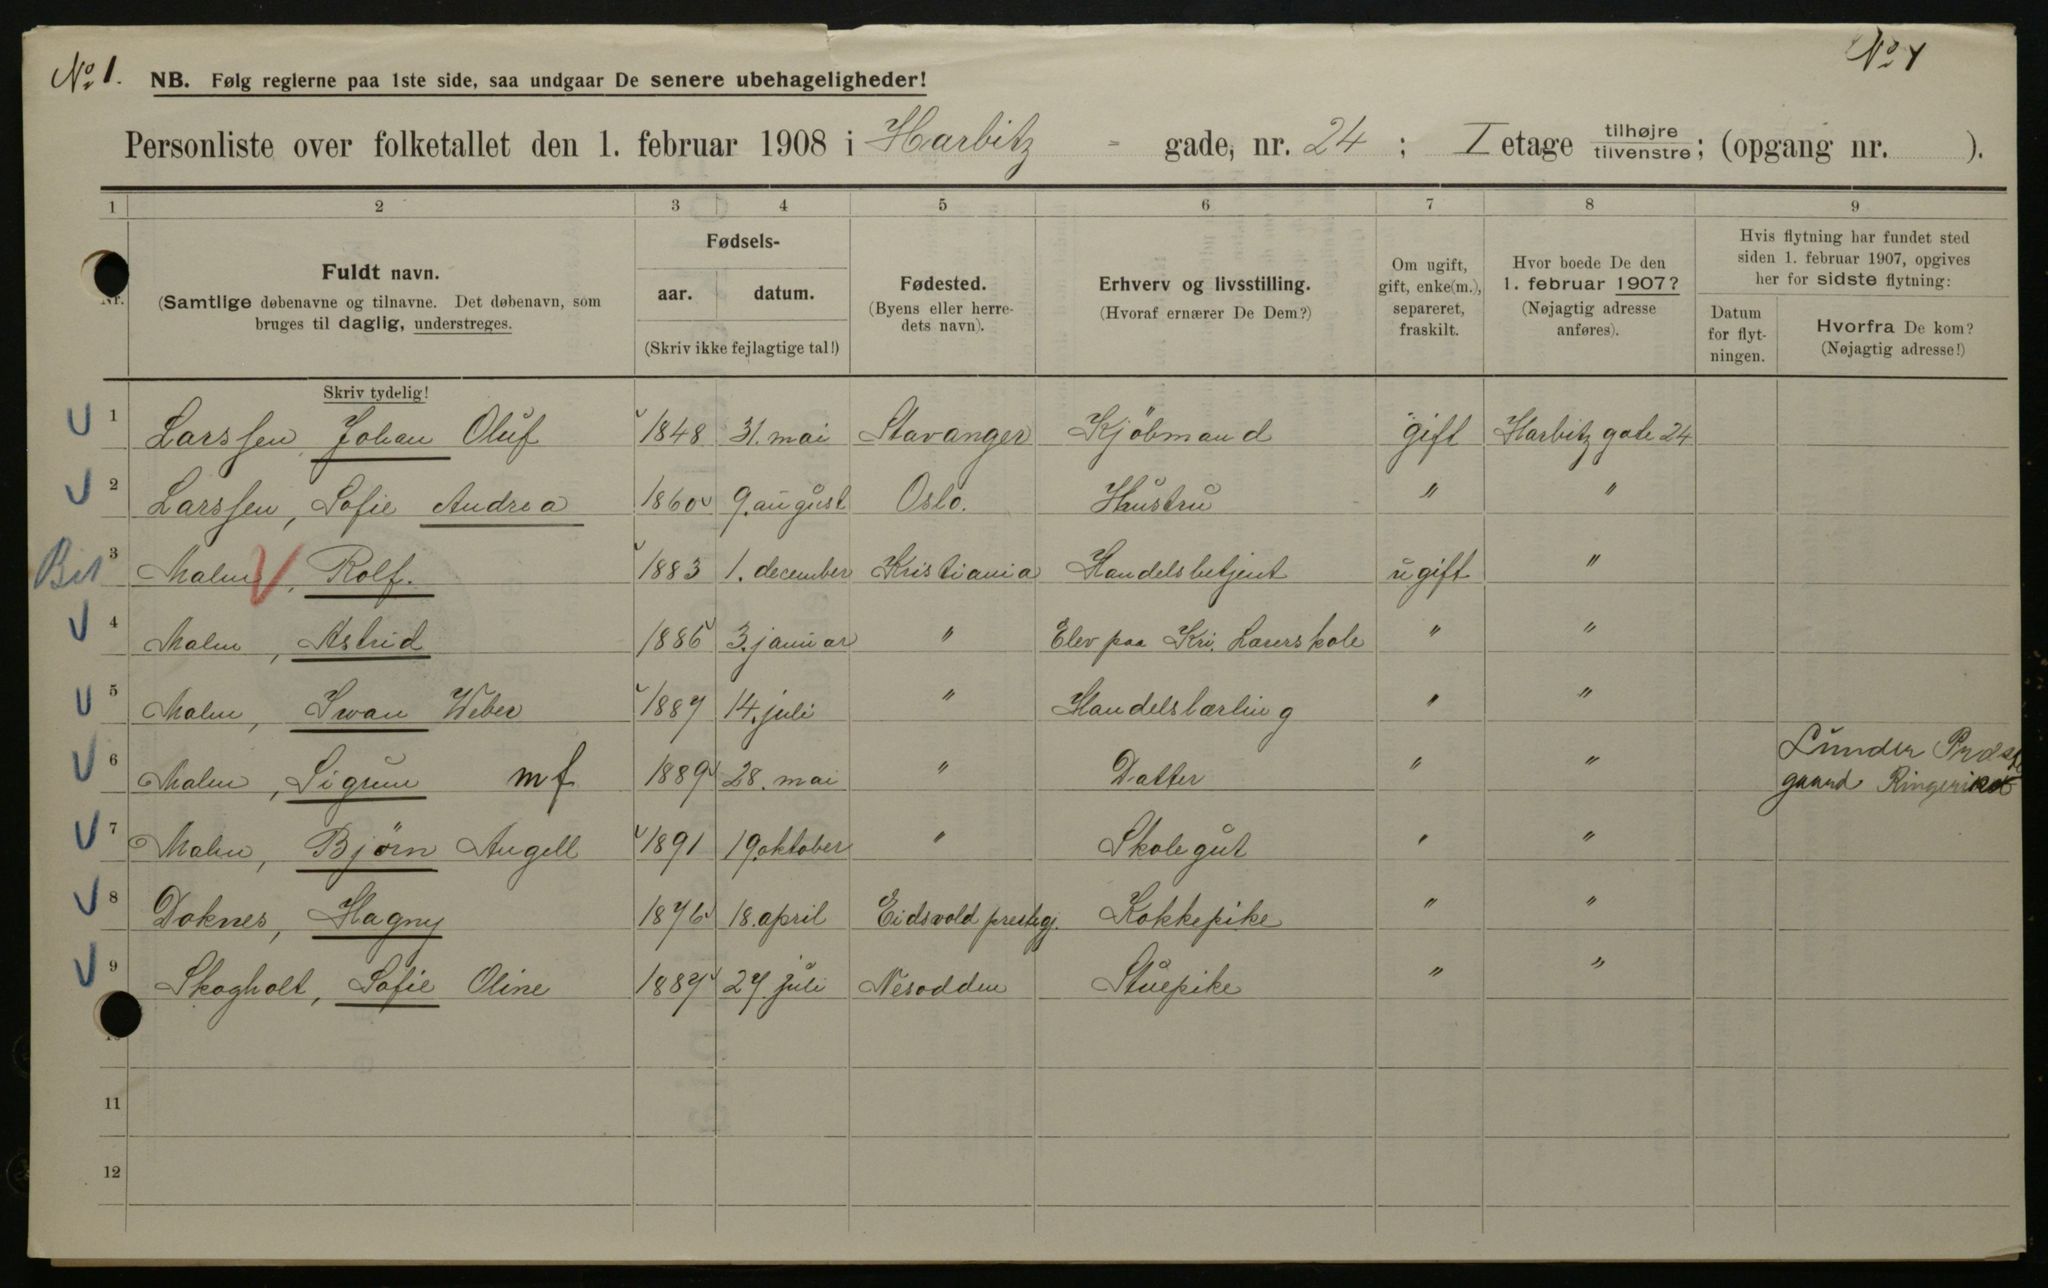 No 1.
NB. Følg reglerne paa 1ste side, saa undgaar De senere ubehageligheder!
Personliste over folketallet den 1. februar 1908 i Harbitz - gade, nr. 24 ; I etage tilhøjre tilvenstre; (opgang nr. ).
1 2 3 4 5 6 7 8 9
Nr.
Fuldt navn.
(Samtlige døbenavne og tilnavne. Det døbenavn, som
bruges til daglig, understreges.
Fødsels-
aar. datum.
(Skriv ikke fejlagtige tal!)
Fødested.
(Byens eller herre-
dets navn).
Erhverv og livsstilling.
(Hvoraf ernærer De Dem?)
Om ugift,
gift, enke(m.),
separeret,
fraskilt.
Hvor boede De den
1. februar 1907?
(Nøjagtig adresse
anføres).
Hvis flytning har fundet sted
siden 1. februar 1907, opgives
her for sidste flytning:
Datum
for flyt-
ningen.
Hvorfra De kom?
(Nøjagtig adresse!)
Skriv tydelig!
1 Larssen, Johan Oluf 1848 31. mai Stavanger Kjöbmand gift Harbitz gate 24
2 Larssen, Sofie Andrea 1860 9. august Oslo. Hustru " "
3 Malm, Rolf. 1883 1. december Kristiania Handelsbetjent ugift "
4 Malm, Astrid 1886 3. januar " Elev paa Kri. Lærerskole " "
5 Malm, Iwan Weber 1887 14. juli " Handelslærling " "
6 Malm, Sigrun mf 1889 28. mai " Datter " " Lunder
gaard
7 Malm, Bjørn Angell 1891 19. oktober " Skolegut " "
8 Doknes, Hagny 1876 18. april Eidsvold prestegj. Kokkepike " "
9 Skogholt, Sofie Oline 1889 27. juli Nesodden Stuepike " "
10
11
12